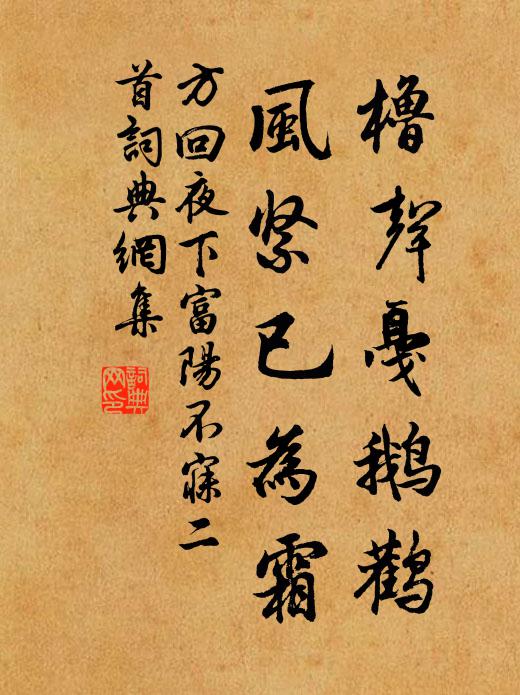 櫓聲戛鵝鸛
風緊已為霜
方回夜下富陽不寐二
首詞典網集
詞典
网印